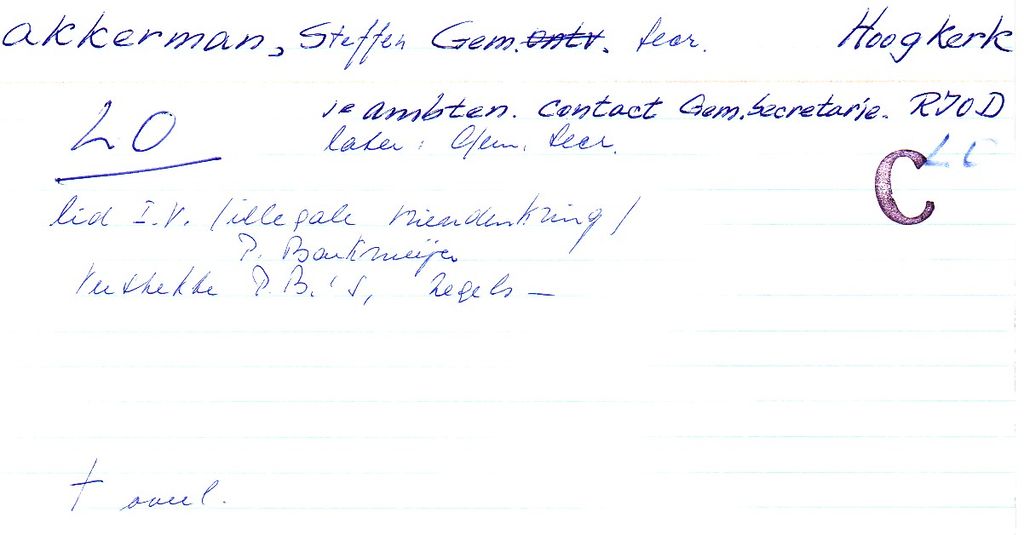 akkerman, Steffen Gem. ontv. Secr. Hoogkerk
1e ambten. contact Gem. Secretarie. RIOD
LO
later: Gem. Secr.
LC
C
lid I.V. /illegale vriendenkring/
P. Boukmeijer
Verstrekte P.B.'s, zegels —
† overl.